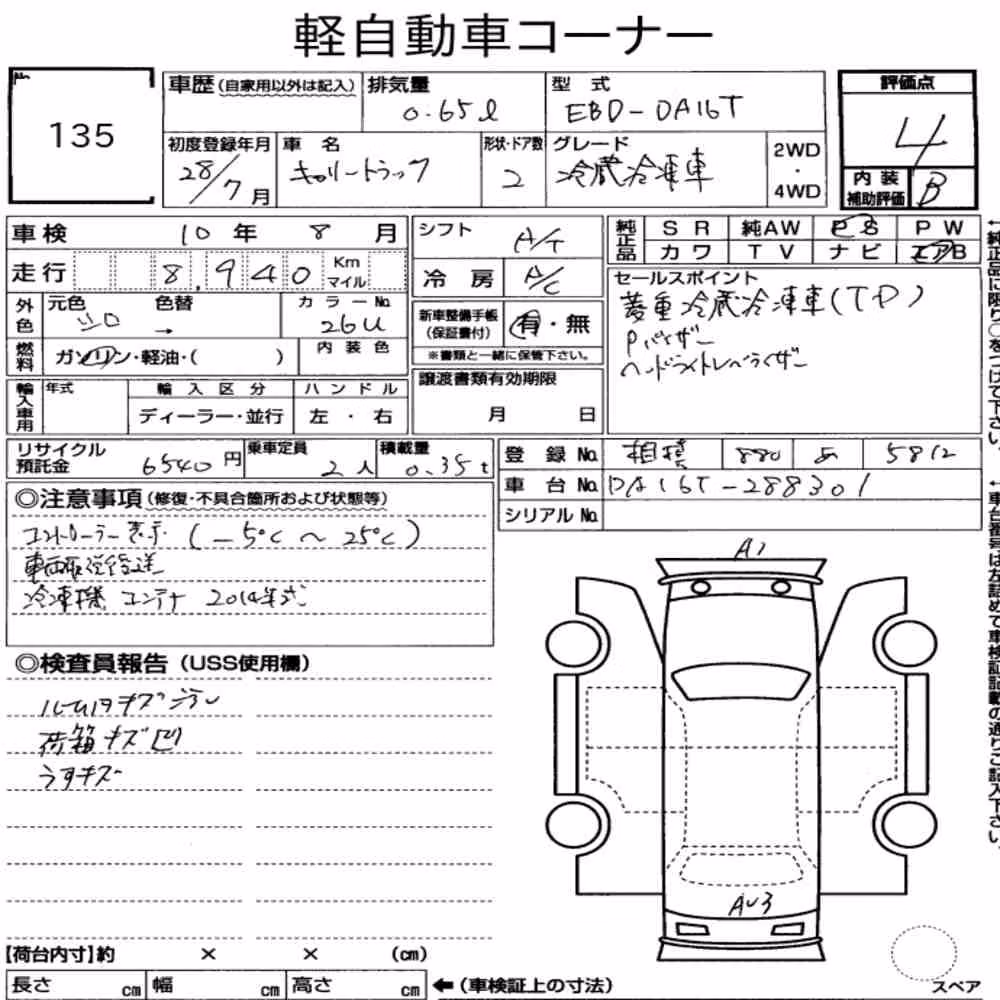 軽自動車コーナー
No.
135
車歴(自家用以外は記入)
排気量
0.65ℓ
型 式
EBD-DA16T
評価点
4
初度登録年月
28/7月
車 名
キャリートラック
形状・ドア数
2
グレード
冷蔵冷凍車
2WD
・
4WD
内装
補助評価
B
車検 10年 8月
シフト
A/T
純正品
SR 純AW PS PW
カワ TV ナビ エアB
走行 8,940 Km
マイル
冷 房
A/C
セールスポイント
菱重冷蔵冷凍車(TP)
Pバイザー
ヘッドライトレベライザー
外色
元色 色替 カラーNo.
シロ → 26U
新車整備手帳
(保証書付)
有・無
※書類と一緒に保管下さい。
燃料
ガソリン・軽油・( )
内装色
輸入車用
年式 輸入区分 ハンドル
ディーラー・並行 左・右
譲渡書類有効期限
月 日
リサイクル
預託金
6540円
乗車定員
2人
積載量
0.35t
登録No. 相模 880 あ 5812
車台No. DA16T-288301
シリアルNo.
◎注意事項(修復・不具合箇所および状態等)
コントローラー表示 (-5℃〜25℃)
冷凍機 コンテナ 2014年式
◎検査員報告(USS使用欄)
荷箱キズ凹
うすキズ
A1
AU3
【荷台内寸】約 × × (cm)
長さ cm 幅 cm 高さ cm ←(車検証上の寸法)
スペア
←純正品に限り○をつけて下さい。
←車台番号は左詰めで車検証記載の通りご記入下さい。